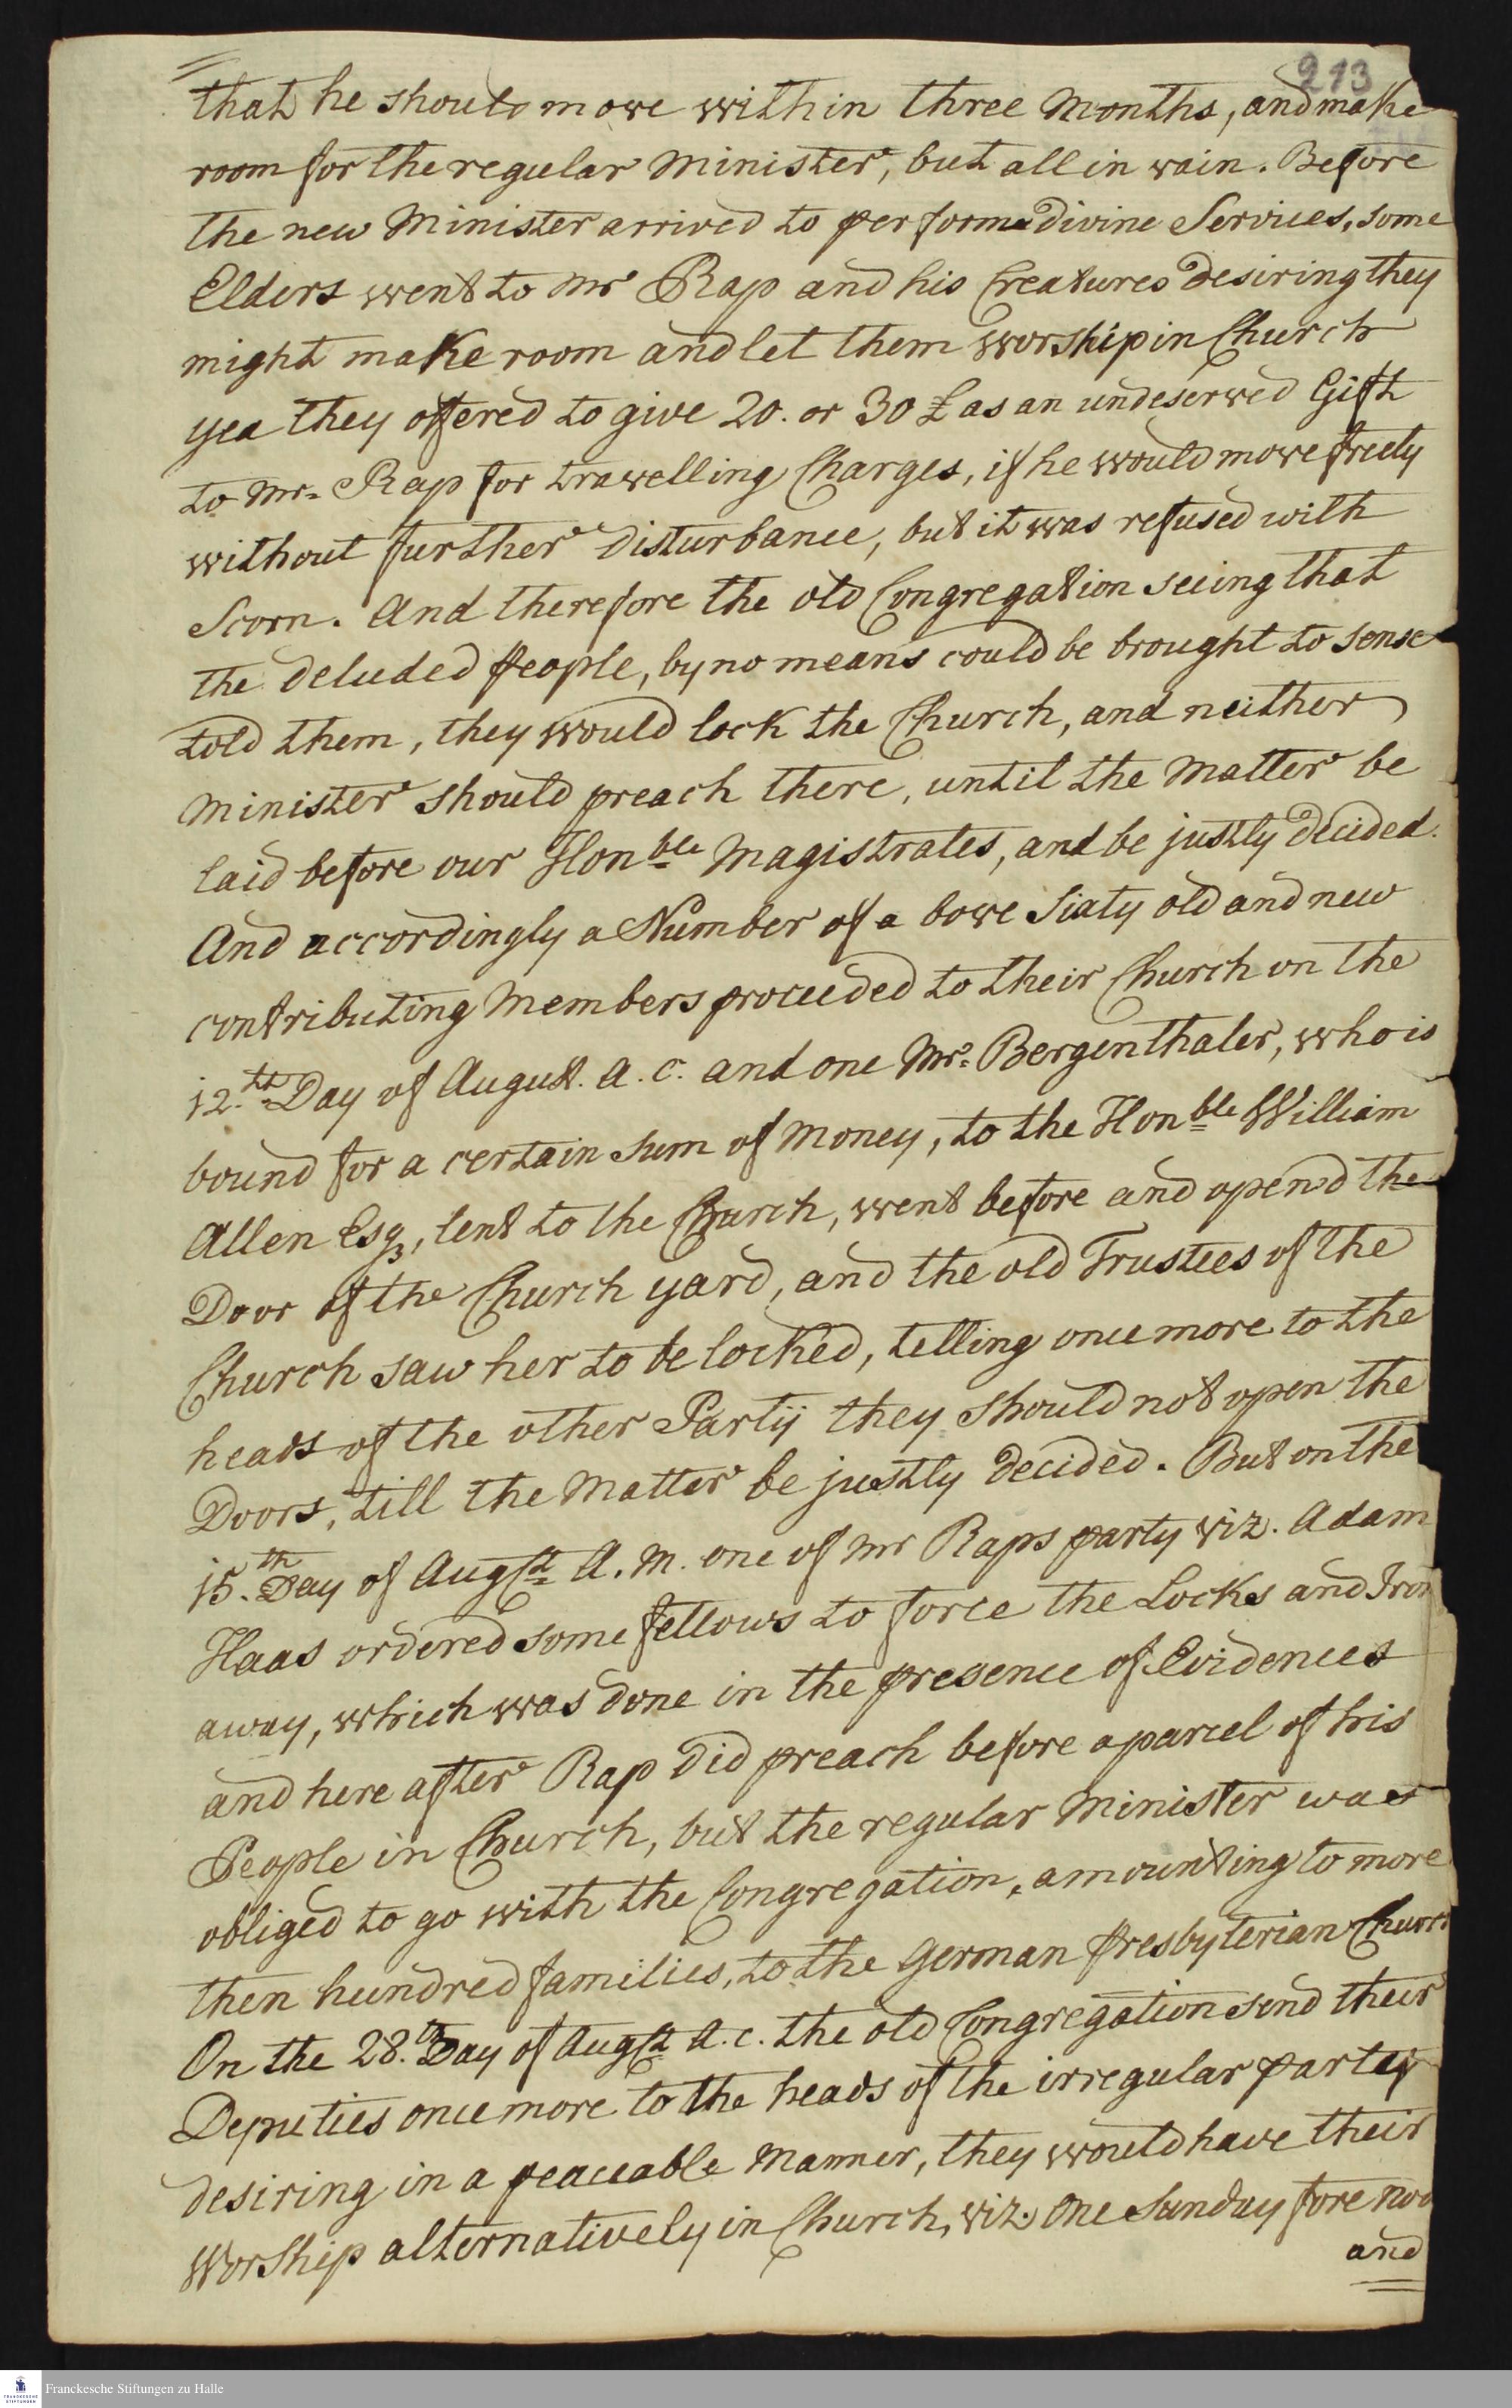 213
that he should mowe within three Months, and make
room for the regular Minister, but all in wain. Before
the new Minister arrived to performe divine Services, some
Elders went to Mr Rap and his Creatures desiring they
might make room and let them worship in Church
yea they offered to give 20. or 30 £ as an undeserwed Gift
to Mr. Rap for trawelling Charges, if he would mowe freely
without further disturbance, but it was refused with
Scorn. And therefore the old Congregation seeing that
the deluded people, by no means could be brought to sense
told them, they would lock the Church, and neither
Minister should preach there, until the Matter be
laid before our Honble Magistrates, and be justly decided.
And accordingly a Number of a bowe Sixty old and new
contributing Members proceeded to their Church on the
12.th Day of August. a. c. and one Mr. Bergenthaler, who is
bound for a certain sum of Money, to the Honble William
Allen Esq, lent to the Church, went before and opend the
Door of the Church yard, and the old Trustees of the
Church saw her to be locked, telling once more to the
heads of the other Partÿ they should not open the
Doors, till the Matter be justly decided. But on the
15.th Day of Augst A. M. one of Mr Raps party wiz. Adam
Haas ordered some fellows to force the Locks and Iron
away, which was done in the presence of Evidences
and here after Rap did preach before a parcel of his
People in Church, but the regular Minister was
obliged to go with the Congregation, amounting to more
then hundred families, to the German presbyterian Church
On the 28.th Day of Augst A. c. the old Congregation send their
Deputies once more to the heads of the irregular party
desiring in a peaceable Manner, they would have their
Worship alternatively in Church, wiz. One Sunday fore noo
and
Franckesche Stiftungen zu Halle